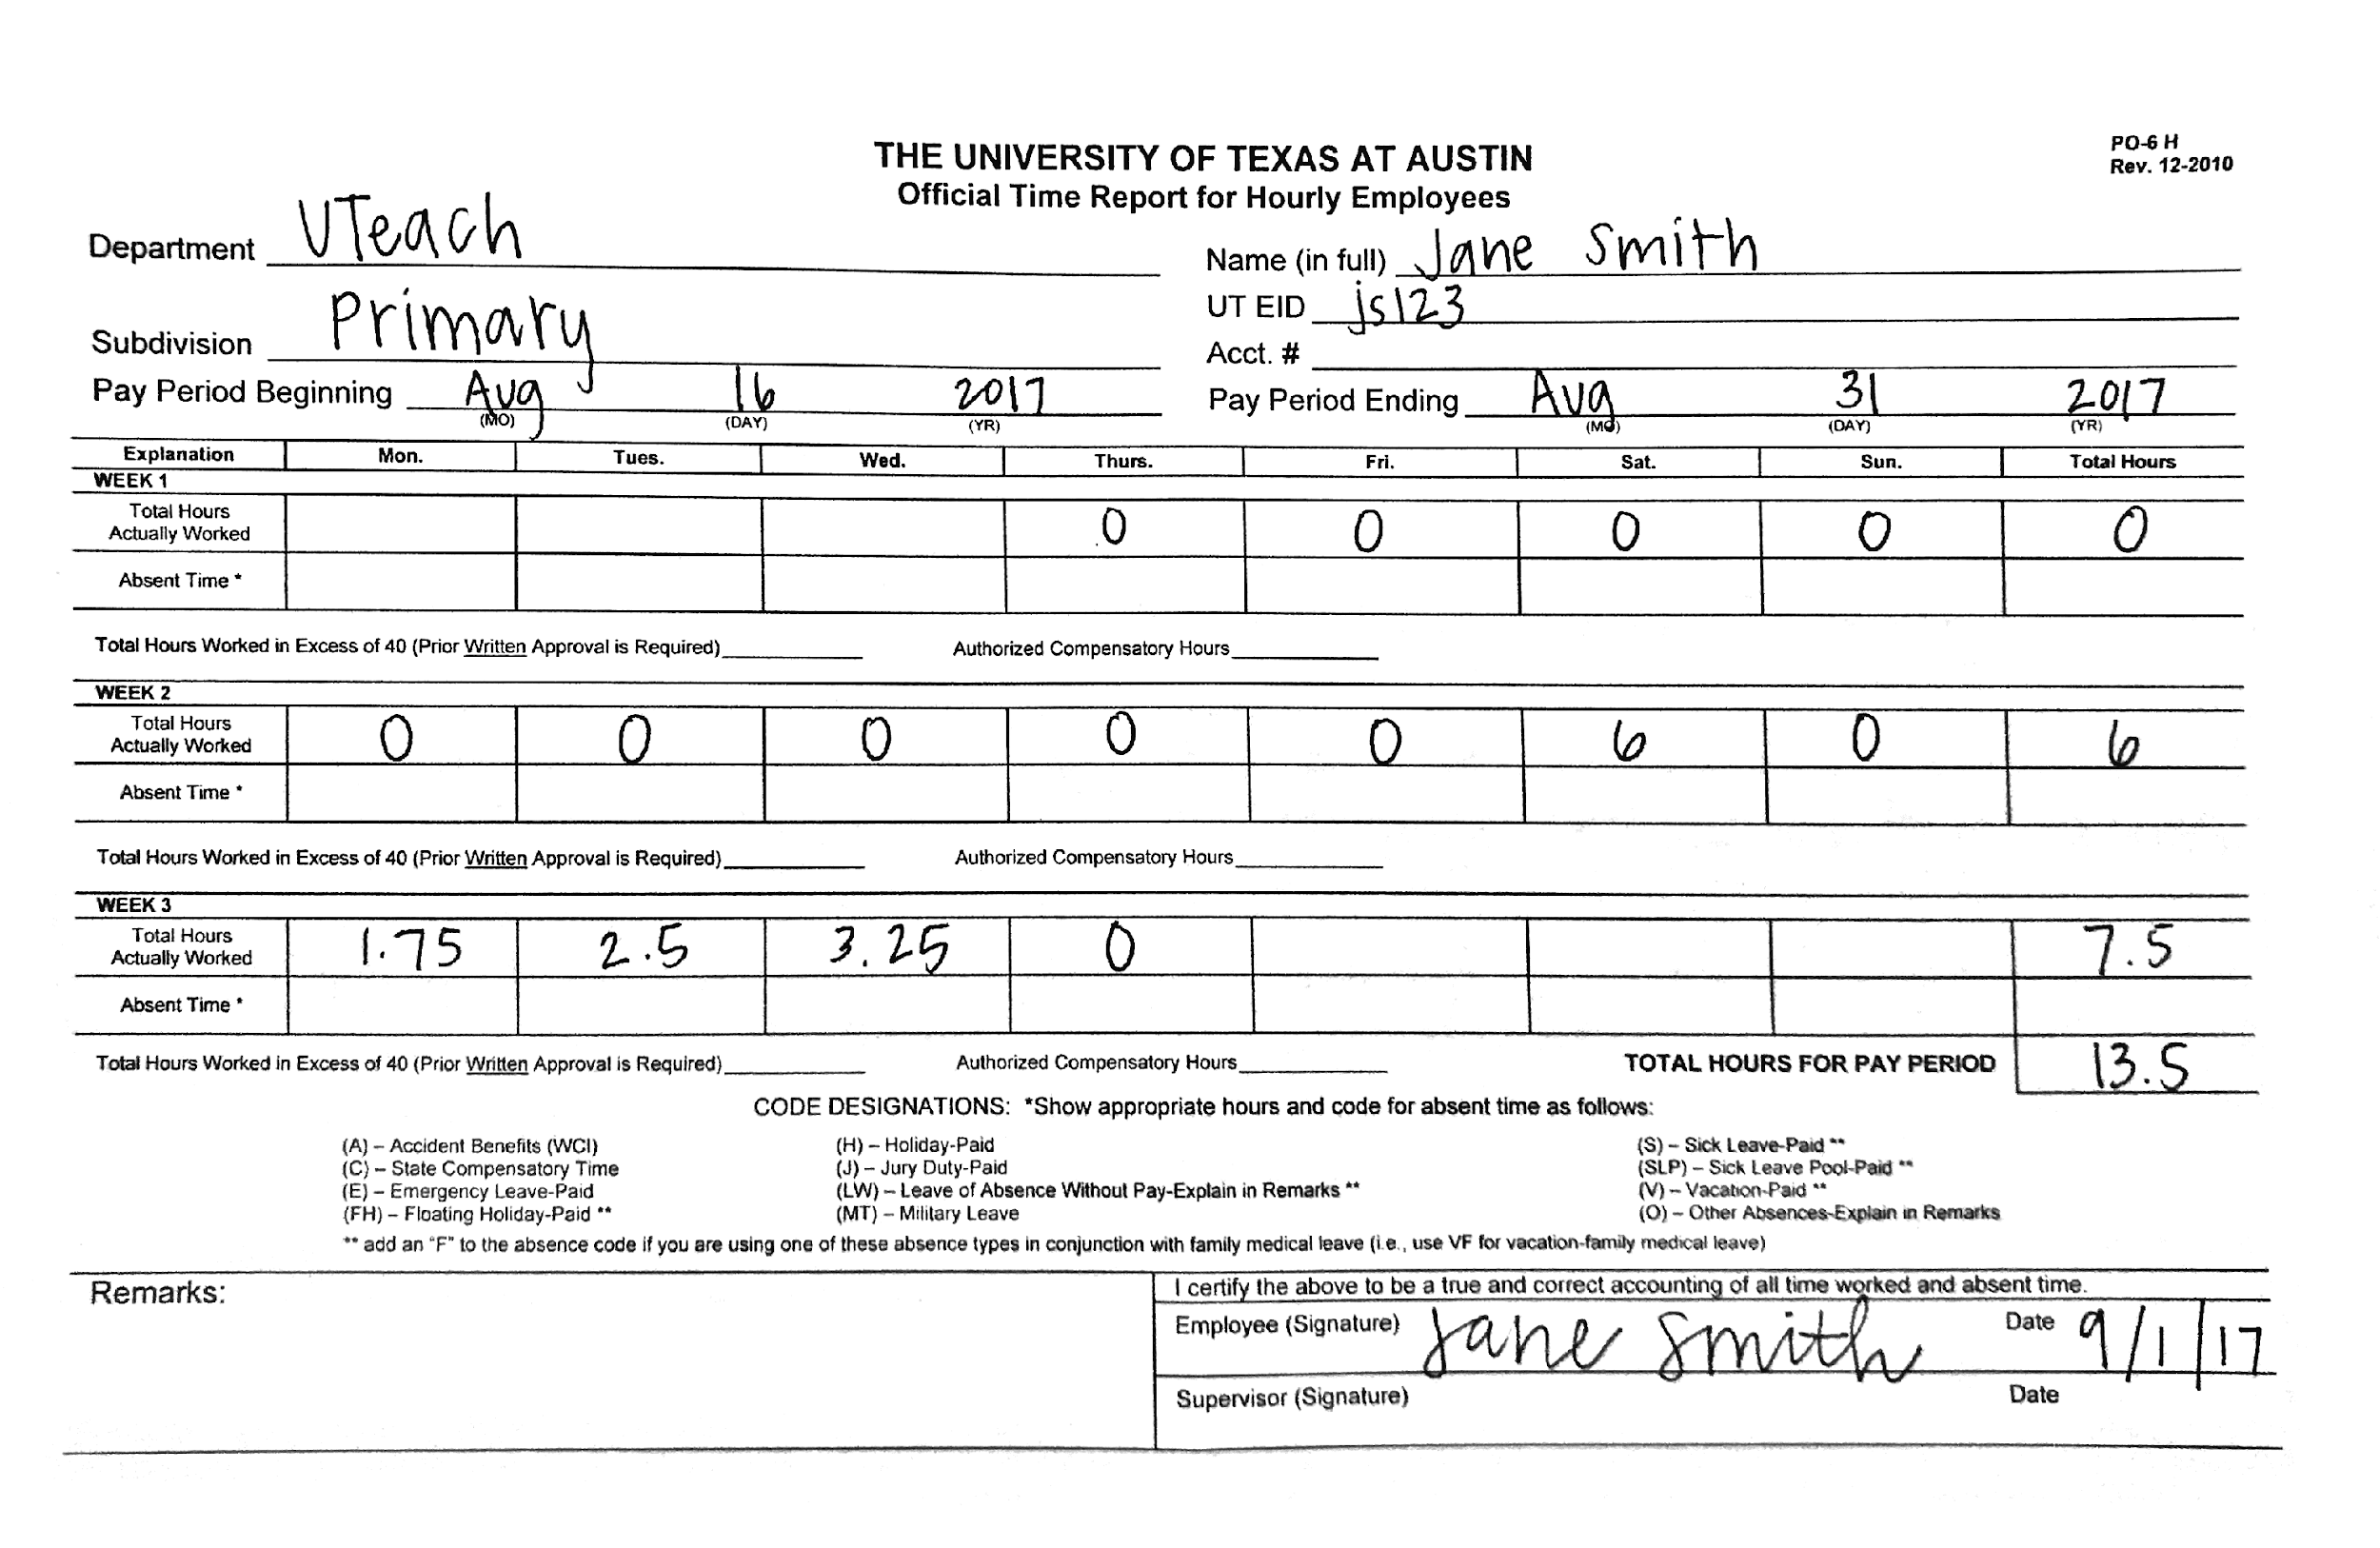 PO-6 H
Rev. 12-2010
THE UNIVERSITY OF TEXAS AT AUSTIN
Official Time Report for Hourly Employees
Department UTeach
Name (in full) Jane Smith
Subdivision Primary
UT EID js123
Acct. #
Pay Period Beginning Aug 16 2017
(MO) (DAY) (YR)
Pay Period Ending Aug 31 2017
(MO) (DAY) (YR)
Explanation Mon. Tues. Wed. Thurs. Fri. Sat. Sun. Total Hours
WEEK 1
Total Hours
Actually Worked 0 0 0 0 0
Absent Time *
Total Hours Worked in Excess of 40 (Prior Written Approval is Required) Authorized Compensatory Hours
WEEK 2
Total Hours
Actually Worked 0 0 0 0 0 6 0 6
Absent Time *
Total Hours Worked in Excess of 40 (Prior Written Approval is Required) Authorized Compensatory Hours
WEEK 3
Total Hours
Actually Worked 1.75 2.5 3.25 0 7.5
Absent Time *
Total Hours Worked in Excess of 40 (Prior Written Approval is Required) Authorized Compensatory Hours TOTAL HOURS FOR PAY PERIOD 13.5
CODE DESIGNATIONS: *Show appropriate hours and code for absent time as follows:
(A) – Accident Benefits (WCI) (H) – Holiday-Paid (S) – Sick Leave-Paid **
(C) – State Compensatory Time (J) – Jury Duty-Paid (SLP) – Sick Leave Pool-Paid **
(E) – Emergency Leave-Paid (LW) – Leave of Absence Without Pay-Explain in Remarks ** (V) – Vacation-Paid **
(FH) – Floating Holiday-Paid ** (MT) – Military Leave (O) – Other Absences-Explain in Remarks
** add an "F" to the absence code if you are using one of these absence types in conjunction with family medical leave (i.e., use VF for vacation-family medical leave)
Remarks:
I certify the above to be a true and correct accounting of all time worked and absent time.
Employee (Signature) Jane Smith Date 9/1/17
Supervisor (Signature) Date